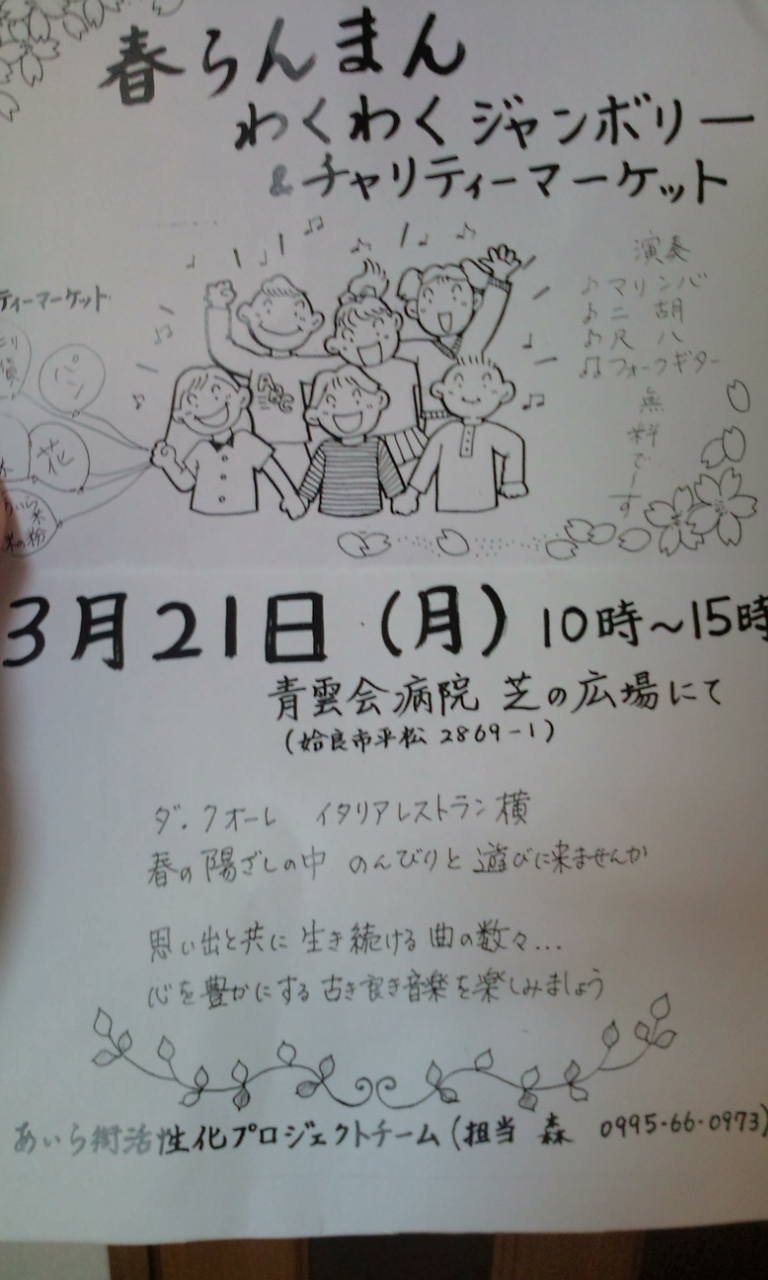 春らんまん
わくわくジャンボリー
&チャリティーマーケット
ティーマーケット
パン
花
米の粉
ABC
演奏
♪マリンバ
♪二胡
♪尺八
♫フォークギター
無料でーす
3月21日(月)10時~15時
青雲会病院 芝の広場にて
(姶良市平松 2869-1)
ダ・クオーレ イタリアレストラン横
春の陽ざしの中 のんびりと遊びに来ませんか
思い出と共に生き続ける曲の数々…
心を豊かにする古き良き音楽を楽しみましょう
あいら街活性化プロジェクトチーム(担当 森 0995-66-0973)